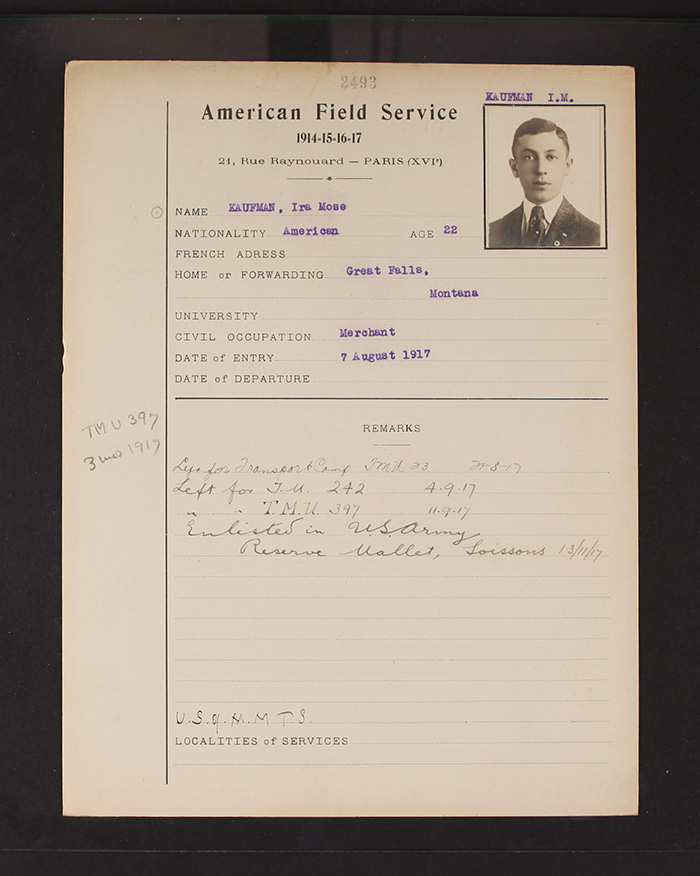 2493
KAUFMAN I.M.
American Field Service
1914-15-16-17
21, Rue Raynouard — PARIS (XVIᵉ)
NAME KAUFMAN, Ira Mose
NATIONALITY American AGE 22
FRENCH ADRESS
HOME or FORWARDING Great Falls,
Montana
UNIVERSITY
CIVIL OCCUPATION Merchant
DATE of ENTRY 7 August 1917
DATE of DEPARTURE
TMU 397
3 mos 1917
REMARKS
Left for Transport Camp TMU 23 21-8-17
Left for T.U. 242 4.9.17
" " T.M.U. 397 11.9.17
Enlisted in U.S. Army
Reserve Mallet, Soissons 13/11/17
U.S.
LOCALITIES of SERVICES